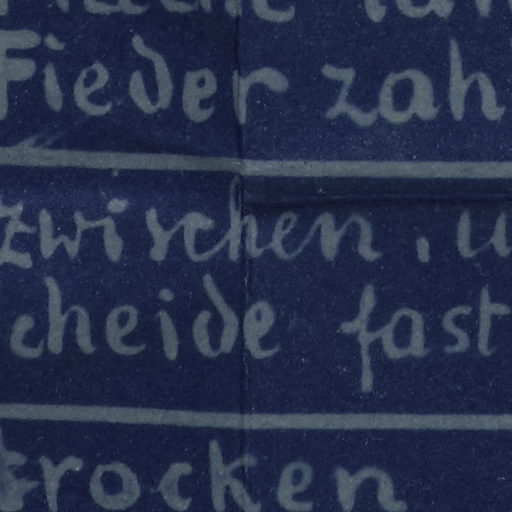 Fieder zah
zwischen, u
cheide fast
trocken